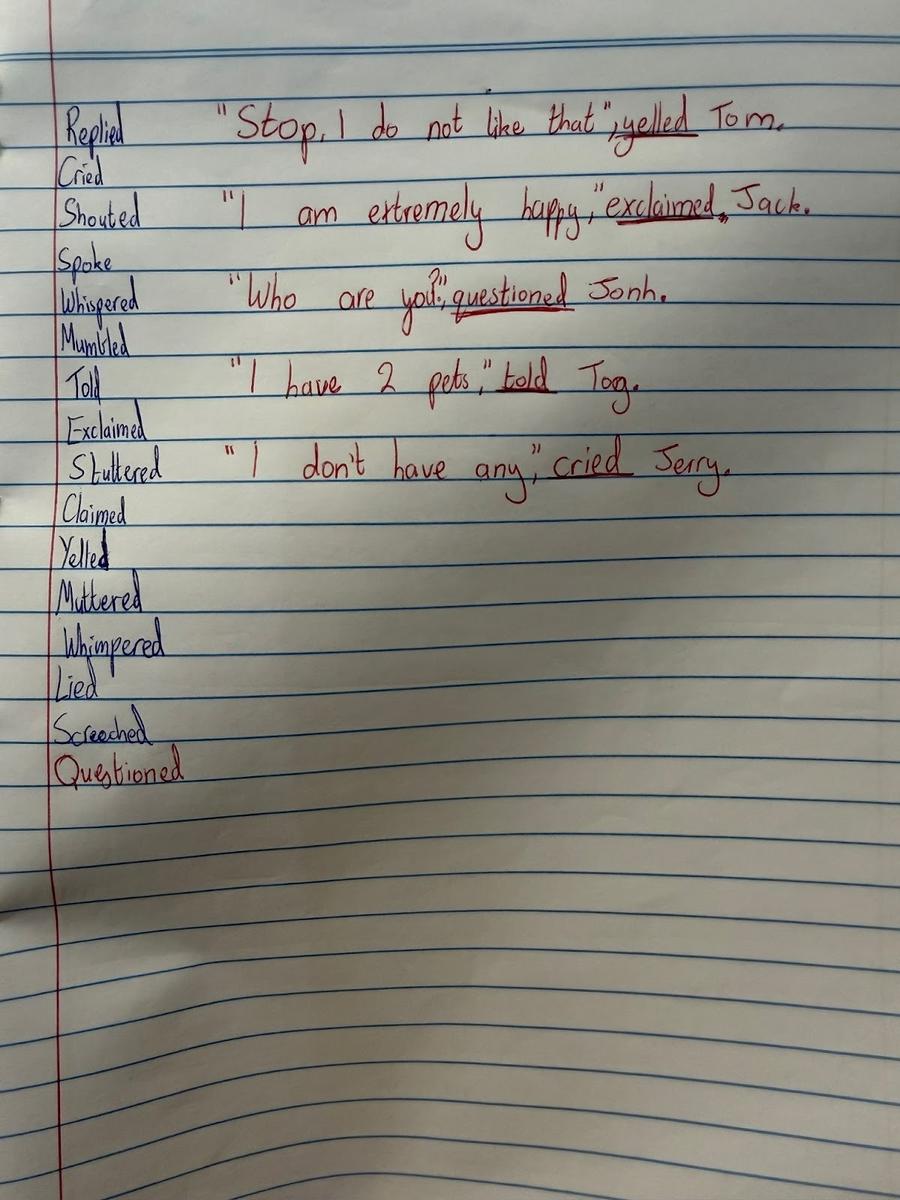 Replied "Stop, I do not like that", yelled Tom.
Cried
Shouted "I am extremely happy," exclaimed, Jack.
Spoke
Whispered "Who are you?", questioned Jonh.
Mumbled
Told "I have 2 pets," told Tog.
Exclaimed
Stuttered "I don't have any", cried Jerry.
Claimed
Yelled
Muttered
Whimpered
Lied
Screeched
Questioned